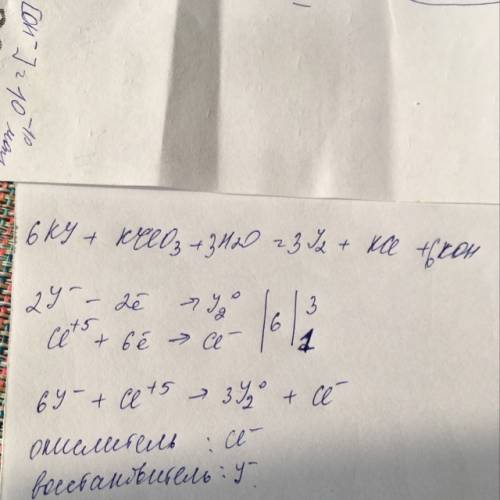 [OH⁻] = 10⁻¹⁰
6KY + KClO3 + 3H2O = 3Y2 + KCl + 6KOH
2Y⁻ - 2ē → Y2⁰ | 6 | 3
Cl⁺⁵ + 6ē → Cl⁻ | | 1
6Y⁻ + Cl⁺⁵ → 3Y2⁰ + Cl⁻
окислитель : Cl⁻
восстановитель : Y⁻